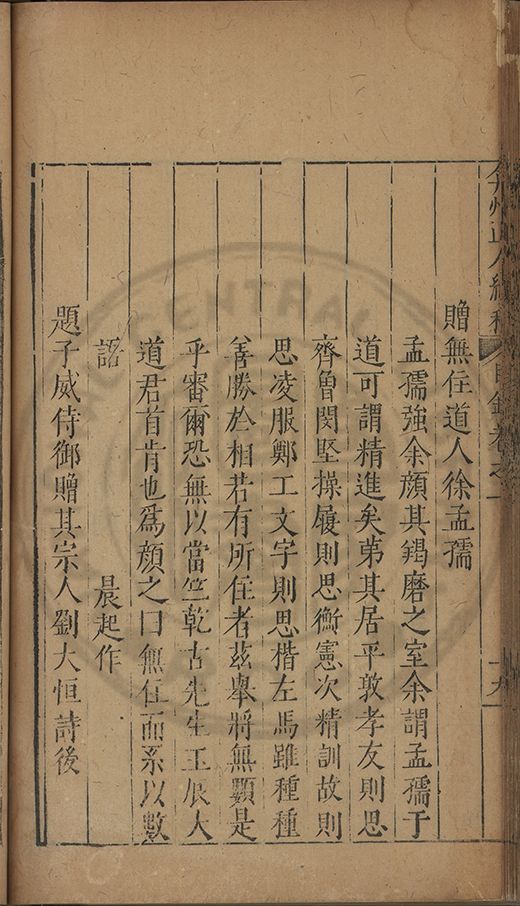 弇州山人續稿 目錄卷之一 十九
贈無住道人徐孟孺
孟孺強余顏其羯磨之室余謂孟孺于
道可謂精進矣苐其居平敦孝友則思
齊魯閔堅操履則思衡憲次精訓故則
思凌服鄭工文字則思楷左馬雖種種
善勝於相若有所住者茲舉將無顥是
乎審爾恐無以當竺乾古先生玉晨大
道君首肯也為顏之曰無住而系以數
語
晨起作
題子威侍御贈其宗人劉大恒詩後
CENTRAL